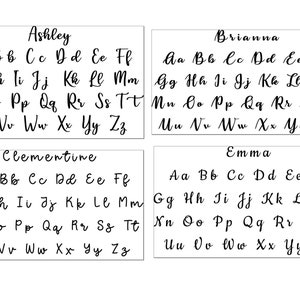 Ashley
Bb Cc Dd Ee Ff
Hh Ii Jj Kk Ll Mm
Oo Pp Qq Rr Ss Tt
Vv Ww Xx Yy Zz
Brianna
Aa Bb Cc Dd Ee
Gg Hh Ii Jj Kk Ll
Nn Oo Pp Qq Rr
Uu Vv Ww Xx Yy
Clementine
Bb Cc Dd Ee Ff
Hh Ii Jj Kk Ll Mm
Oo Pp Qq Rr Ss
Vv Ww Xx Yy Zz
Emma
Aa Bb Cc Dd Ee
Gg Hh Ii Jj Kk Ll
Nn Oo Pp Qq Rr
Uu Vv Ww Xx Yy